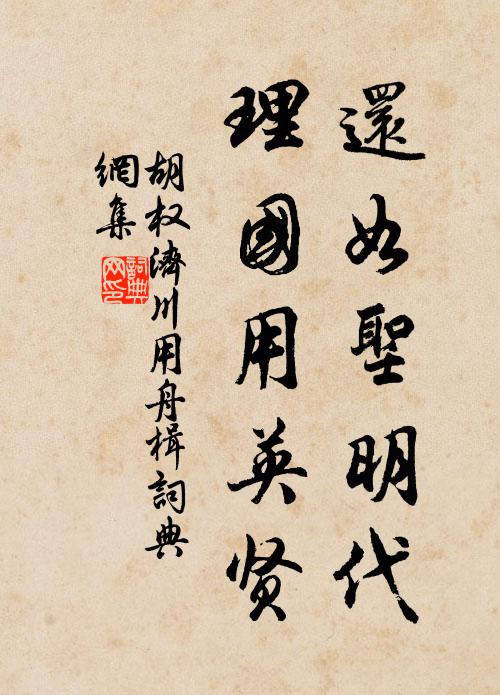 還如聖明代
理國用英贤
胡权濟川用舟楫詞典
網集
詞典
网印